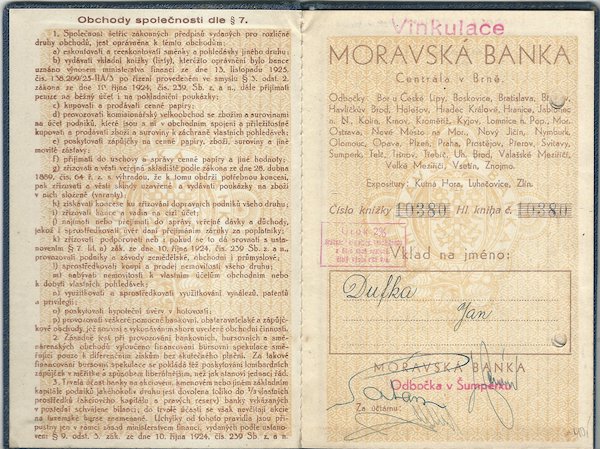 Obchody společnosti dle § 7.
1. Společnosti šetříc zákonných předpisů vydaných pro rozličné
druhy obchodů, jest oprávněna k těmto obchodům:
a) eskontovati a reeskontovati směnky a pohledávky jiného druhu;
b) vydávati vkladní knížky (listy), kteréžto oprávnění bylo bance
uznáno výnosem ministerstva financí ze dne 13. listopadu 1925,
čís. 138.269/25-IIA/3 po řízení provedeném ve smyslu § 3. odst. 2.
zákona ze dne 10. října 1924, čís. 239. Sb. z. a n., dále přijímati
peníze na běžný účet i na pokladniční poukázky;
c) kupovati a prodávati cenné papíry;
d) provozovati komisionářský velkoobchod se zbožím a surovinami
na účet podílníků, kteří jsou s ní v obchodním spojení a příležitostně
kupovati a prodávati zboží a suroviny k záchraně vlastních pohledávek;
e) poskytovati zápůjčky na cenné papíry, zboží, suroviny a jiné
movité zástavy;
f) přijímati do úschovy a správy cenné papíry a jiné hodnoty;
g) zřizovati a vésti veřejná skladiště podle zákona ze dne 28. dubna
1889, čís. 64 ř. z. s výhradou, že k tomu obdrží potřebnou koncesi,
pak zřizovati a vésti sklady uzavřené a vydávati poukázky na zboží
v nich složené (warranty);
h) získávati koncese k zřizování dopravních podniků všeho druhu;
i) zřizovati licence a vadia na cizí účet;
j) najmouti nebo přejmouti do správy veřejné dávky a důchody,
jakož i sprostředkovati úvěr daní zřejmeným záruky za poplatníky;
k) zřizovati podporovati a pokud se to dá srovnati s ustano-
vením § 7. lit. a) zák. ze dne 10. října 1924, čís. 239 Sb. z. a n.,
provozovati podniky a závody zemědělské, obchodní i průmyslové;
l) sprostředkovati koupi a prodej nemovitostí všeho druhu;
m) nabývati nemovitostí k vlastním účelům obchodním nebo
k dobytí vlastních pohledávek;
n) využitkovati a sprostředkovati využitkování vynálezů, patentů
a privilegií;
o) poskytovati hypoteční úvěry v hotovosti;
p) provozovati veškeré pomocné bankovní, obstaravatelské a zápůjč-
kové obchody, jež souvisí s vykonáváním shora uvedené obchodní činnosti.
2. Zásadně jest při provozování bankovních, bursovních a smě-
nárenských obchodů vyloučeno financování bursovní spekulace smě-
řující pouze k diferenčním ziskům bez skutečného plnění. Za takové
financování bursovní spekulace se pokládá též poskytování lombardních
zápůjček vměřítku a způsobem liberálnějším, než jak stanoví její jednací řád.
3. Trvalá účast banky na akciovém, kmenovém nebo jiném základním
kapitálu podniků jakéhokoli druhu jest dovolena toliko do 1/3 vlastních
prostředků (akciového kapitálu a pravých reserv) banky vykázaných
v poslední schválené bilanci; do trvalé účasti se však nevčítají akcie
na tuzemské burse znamenané. Úchylky od tohoto pravidla jsou pří-
pustny jen v rámci zásad ministerstvem financí, vydaných podle ustano-
vení § 9. odst. 3. zák. ze dne 10. října 1924, čís. 239 Sb. z. a n.
Vinkulace
MORAVSKÁ BANKA
Centrála v Brně.
Odbočky: Bor u České Lípy, Boskovice, Bratislava,
Havlíčkův Brod, Holešov, Hradec Králové, Hranice, Jablonec
n. N., Kolín, Krnov, Kroměříž, Kyjov, Lomnice n. Pop., Mor.
Ostrava, Nové Město n. Mor., Nový Jičín, Nymburk,
Olomouc, Opava, Plzeň, Praha, Prostějov, Přerov, Svitavy,
Šumperk, Telč, Tišnov, Třebíč, Uh. Brod, Valašské Meziříčí,
Velké Meziříčí, Vsetín, Znojmo.
Expositury: Kutná Hora, Luhačovice, Zlín.
Číslo knížky 10380 Hl. kniha č. 10380
Vklad na jméno:
Dufka
Jan
MORAVSKÁ BANKA
Odbočka v Šumperku
Za účtárnu: